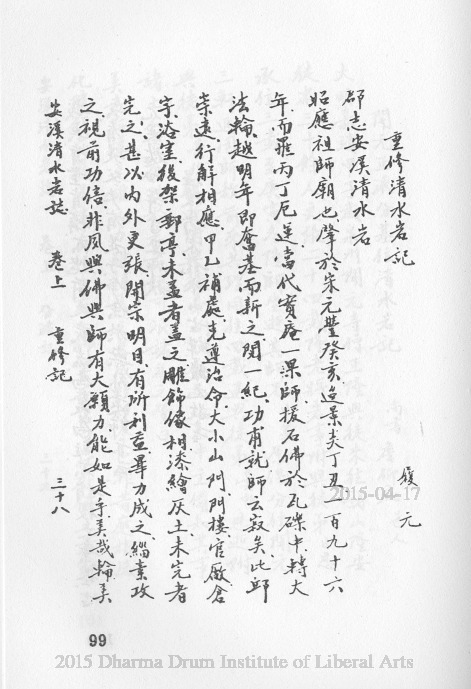 重修清水岩記
履元
郡志安溪清水岩
昭應祖師廟也肇於宋元豐癸亥迨景炎丁丑一百九十六
年而罹丙丁厄運當代寶庵一果師援石佛於瓦礫中轉大
法輪越明年即奮基而新之閱一紀功甫就師云寂矣比邱
崇遠行解相應甲乙補處克遵治命大小山門門樓官廠倉
宇浴室後架郵亭未蓋者蓋之雕飾像相漆繪灰土未完者
完之甚以內外更張開宗明目有所利益畢力成之緇素攻
之視前功倍非夙與佛與師有大願力能如是乎美哉輪美
安溪清水岩誌 卷上 重修記 三十八
99
2015-04-17
2015 Dharma Drum Institute of Liberal Arts